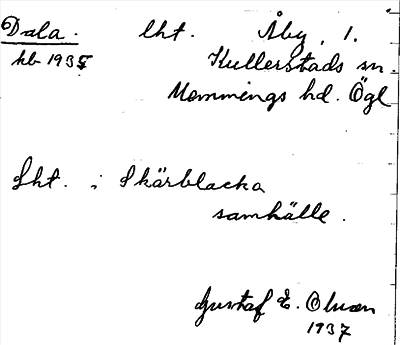 Dala. lht. Åby, 1.
hb 1935 Kullerstads sn.
Memmings hd. Ögl
Lht. i Skärblacka
samhälle.
Gustaf E. Olsson
1937